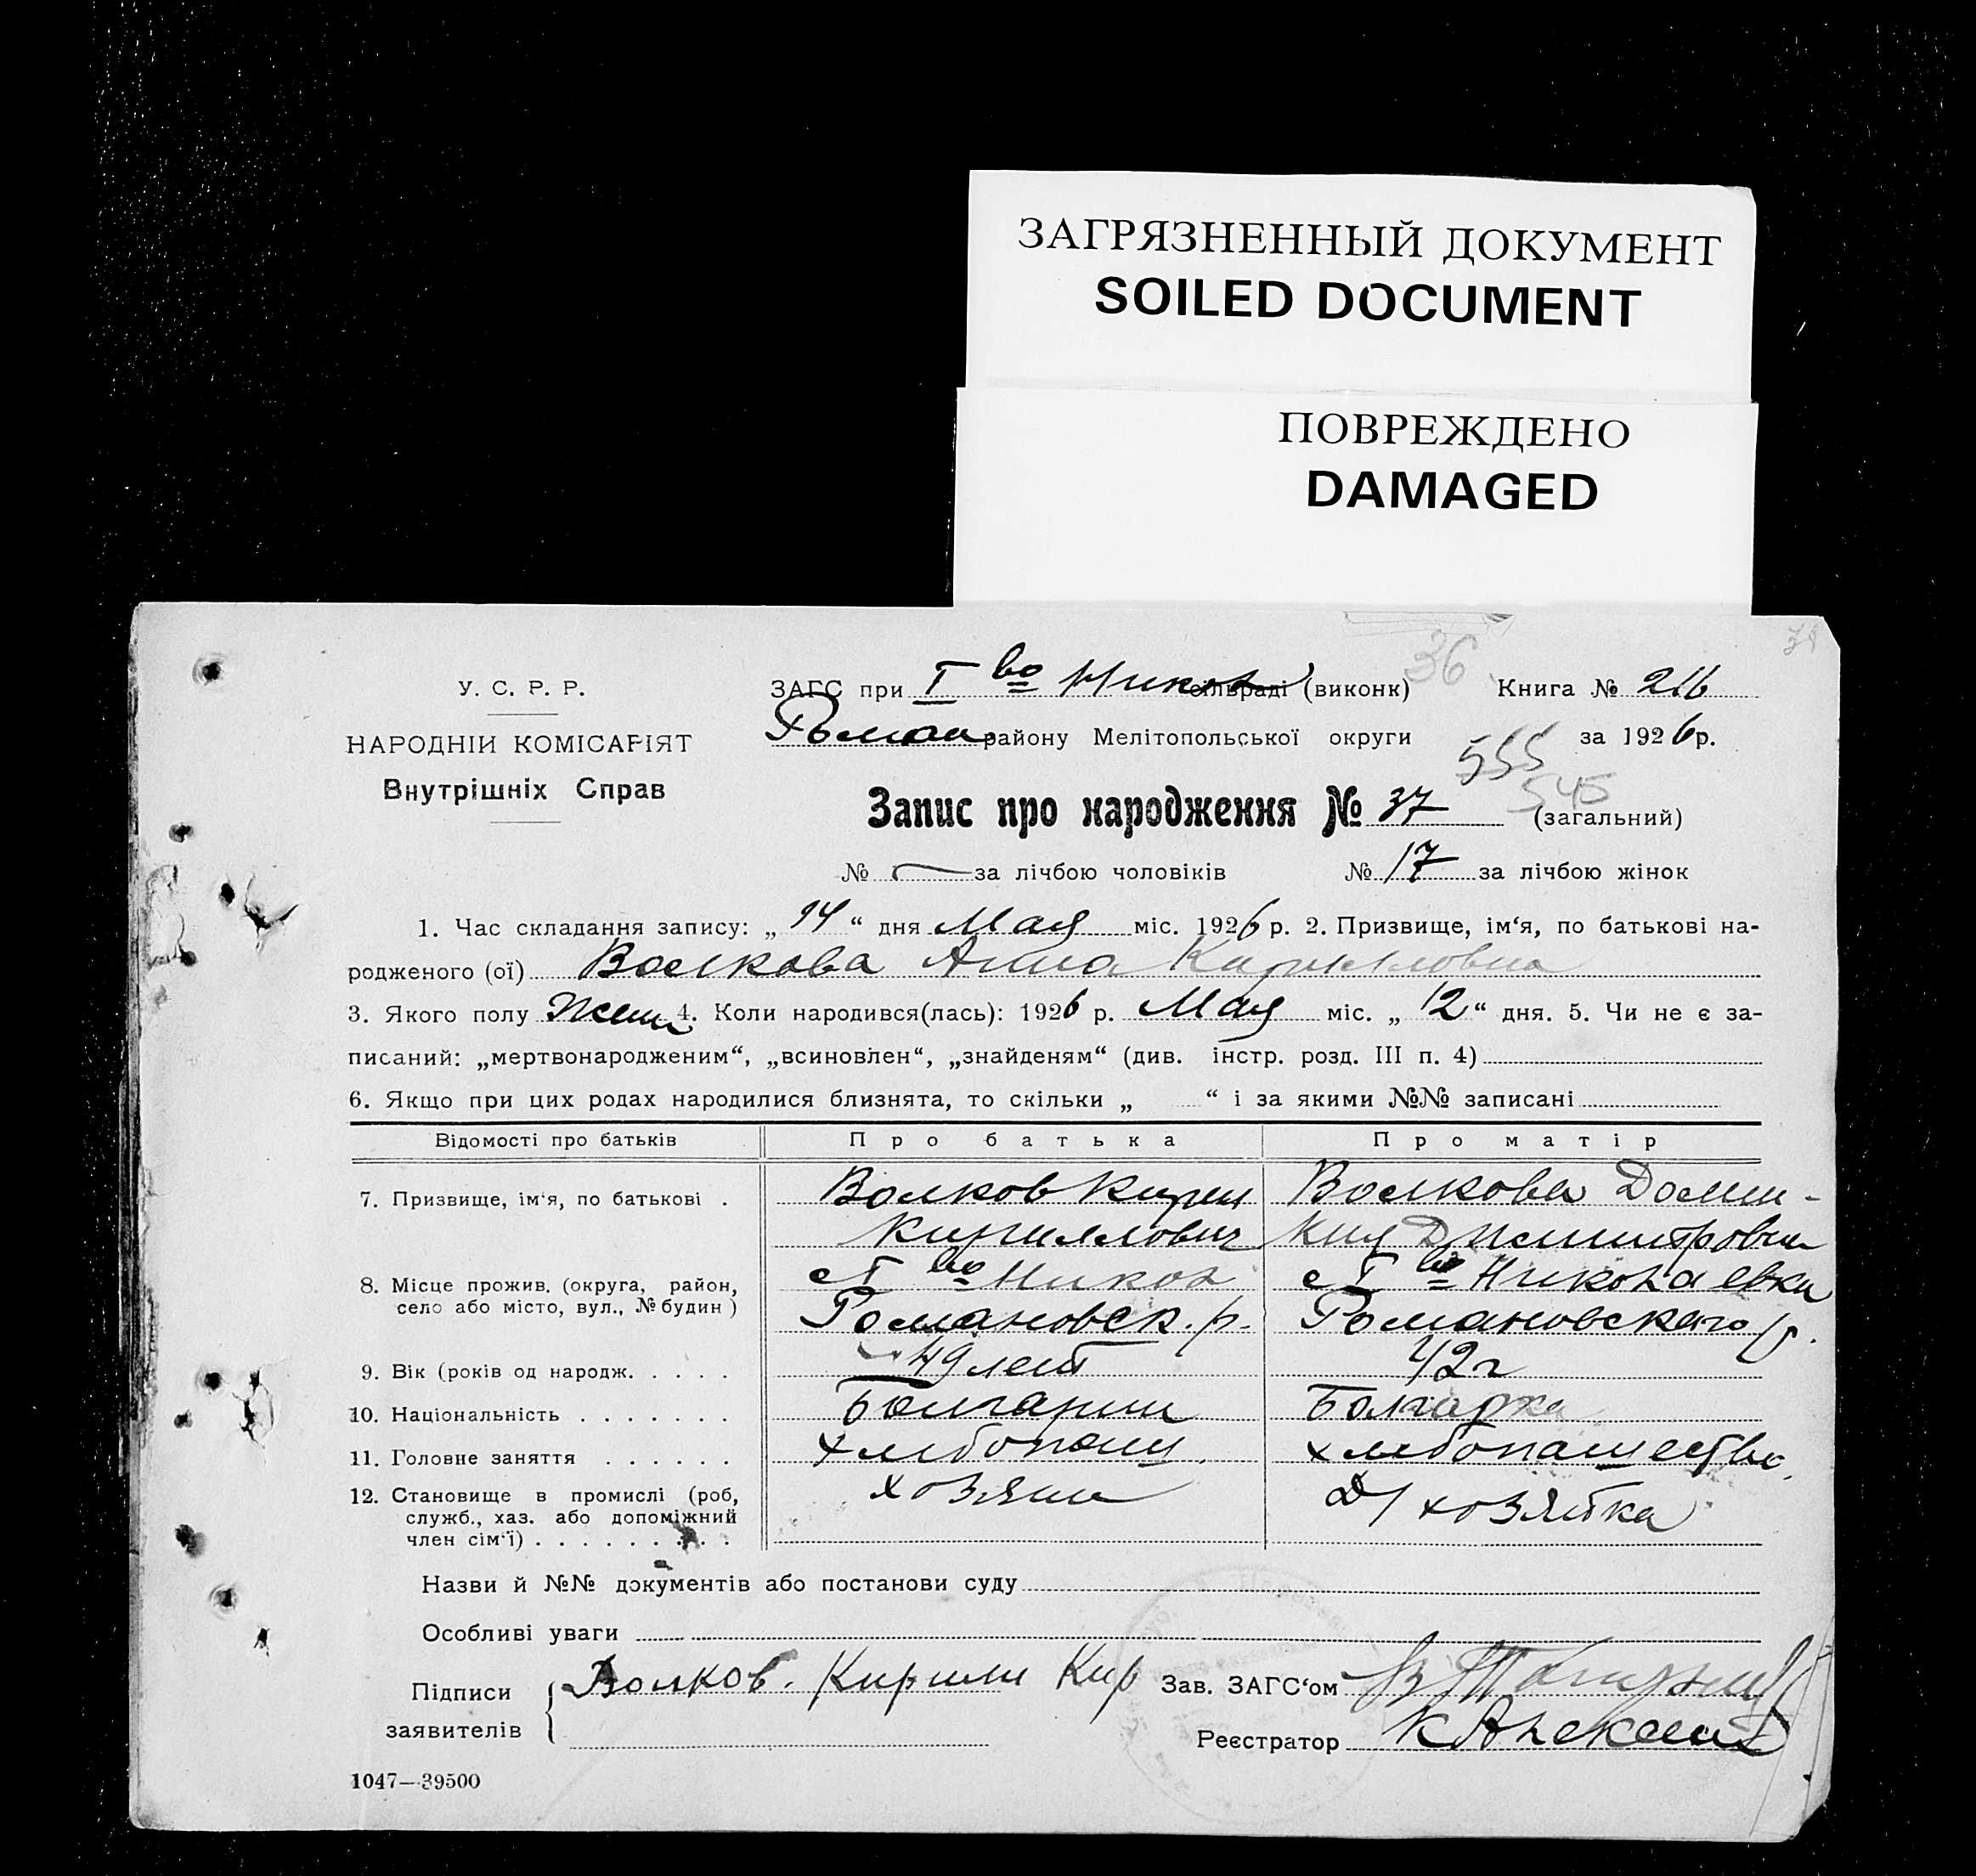 ЗАГРЯЗНЕННЫЙ ДОКУМЕНТ
SOILED DOCUMENT
ПОВРЕЖДЕНО
DAMAGED
36
У. С. Р. Р.
ЗАГС при I во Никол сільраді (виконк) Книга № 216
НАРОДНІЙ КОМІСАРІЯТ
Роман району Мелітопольської округи за 1926 р.
Внутрішніх Справ
555
545
Запис про народження № 37 (загальний)
№ — за лічбою чоловіків № 17 за лічбою жінок
1. Час складання запису: „ 14 “ дня Мая міс. 1926 р. 2. Призвище, ім‘я, по батькові на-
родженого (ої) Волкова Анна Кирилловна
3. Якого полу Жен 4. Коли народився(лась): 1926 р. Мая міс. „ 12 “ дня. 5. Чи не є за-
писаний: „мертвонародженим“, „всиновлен“, „знайденям“ (див. інстр. розд. III п. 4)
6. Якщо при цих родах народилися близнята, то скільки „ “ і за якими №№ записані
Відомості про батьків Про батька Про матір
7. Призвище, ім‘я, по батькові . Волков Кирил Волкова Доми-
Кириллович кия Дмитровна
8. Місце прожив. (округа, район, с I во Никол с I во Николаевка
село або місто, вул., № будин ) Романовск. р. Романовскаго р.
9. Вік (років од народж. . . . . 49 лет 42 г
10. Національність . . . . . . . Болгарин Болгарка
11. Головне заняття . . . . . . хлебопаш. хлебопашество.
12. Становище в промислі (роб, хозяин Д/хозяйка
служб., хаз. або допоміжний
член сім‘ї) . . . . . . . . .
Назви й №№ документів або постанови суду
Особливі уваги
Підписи заявителів Волков. Кирилл Кир Зав. ЗАГС‘ом
Реєстратор
1047—39500